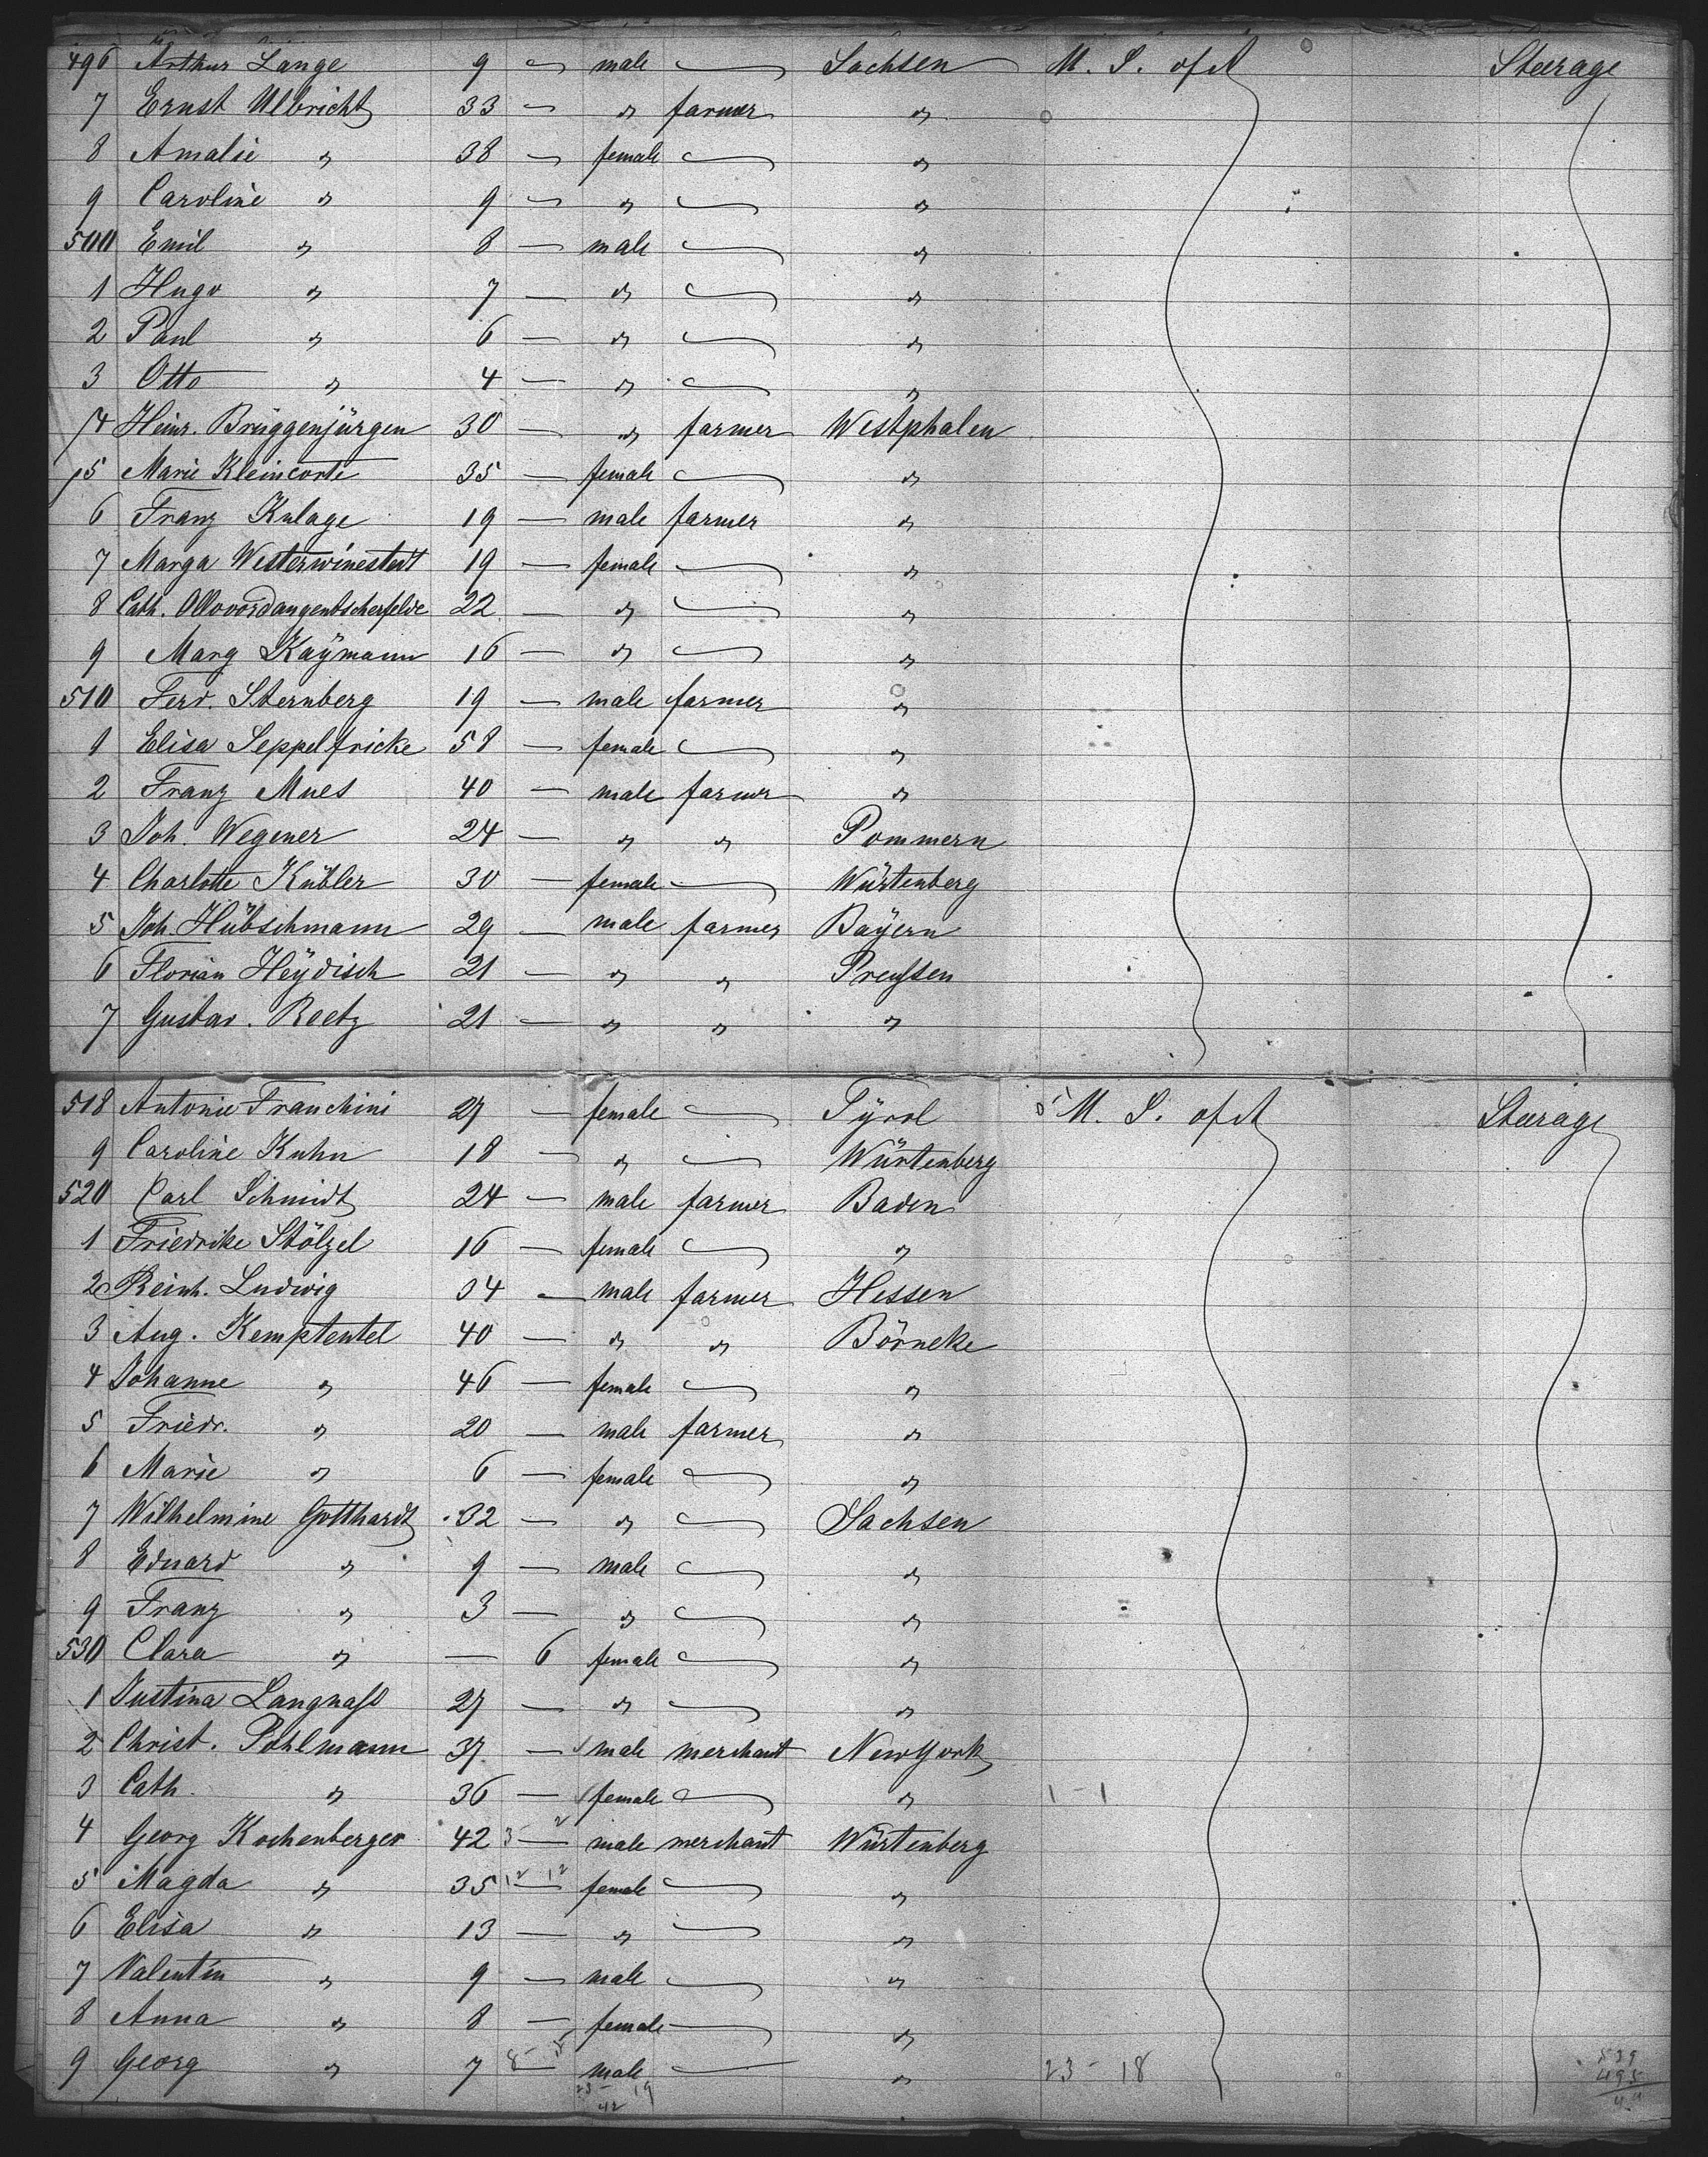 496 Arthur Lange 9 — male — Sachsen M. S. of A Steerage
7 Ernst Ulbricht 33 — " farmer "
8 Amalie " 38 — female — "
9 Caroline " 9 — " — "
500 Emil " 8 — male — "
1 Hugo " 7 — " — "
2 Paul " 6 — " — "
3 Otto " 4 — " — "
4 Heinr. Brüggenjürgen 30 — " farmer Westphalen
5 Marie Kleincorte 35 — female — "
6 Franz Kulage 19 — male farmer "
7 Marga Westerwinestedt 19 — female — "
8 Cath. 22 — " — "
9 Marg Kaÿmann 16 — " — "
510 Ferd. Sternberg 19 — male farmer "
1 Elisa Seppelfricke 58 — female — "
2 Franz Mues 40 — male farmer "
3 Joh. Wegener 24 — " " Pommern
4 Charlotte Kübler 30 — female — Würtenberg
5 Joh. Hübschmann 29 — male farmer Baÿern
6 Florian Heÿdisch 21 — " " Preußen
7 Gustav. Reetz 21 — " " "
518 Antonie Franchini 27 — female — Tÿrol M. S. of A Steerage
9 Caroline Kuhn 18 — " — Würtenberg
520 Carl Schmidt 24 — male farmer Baden
1 Friedrike Stölzel 16 — female — "
2 Reinh. Ludwig 34 — male farmer Hessen
3 Aug. Kemptentel 40 — " " Börneke
4 Johanne " 46 — female — "
5 Friedr. " 20 — male farmer "
6 Marie " 6 — female — "
7 Wilhelmine Gotthardt 32 — " — Sachsen
8 Eduard " 9 — male — "
9 Franz " 3 — " — "
530 Clara " — 6 female — "
1 Justina Langnaß 27 — " — "
2 Christ. Pohlmann 37 — male merchant New York
3 Cath. " 36 — female — " 1 - 1
4 Georg Kochenberger 42 3 — 2 male merchant Würtenberg
5 Magda " 35 12 — 12 female — "
6 Elisa " 13 — " — "
7 Valentin " 9 — male — "
8 Anna " 8 — female — "
9 Georg " 7 8 — male — " 23 - 18 539
23 - 19 495
42